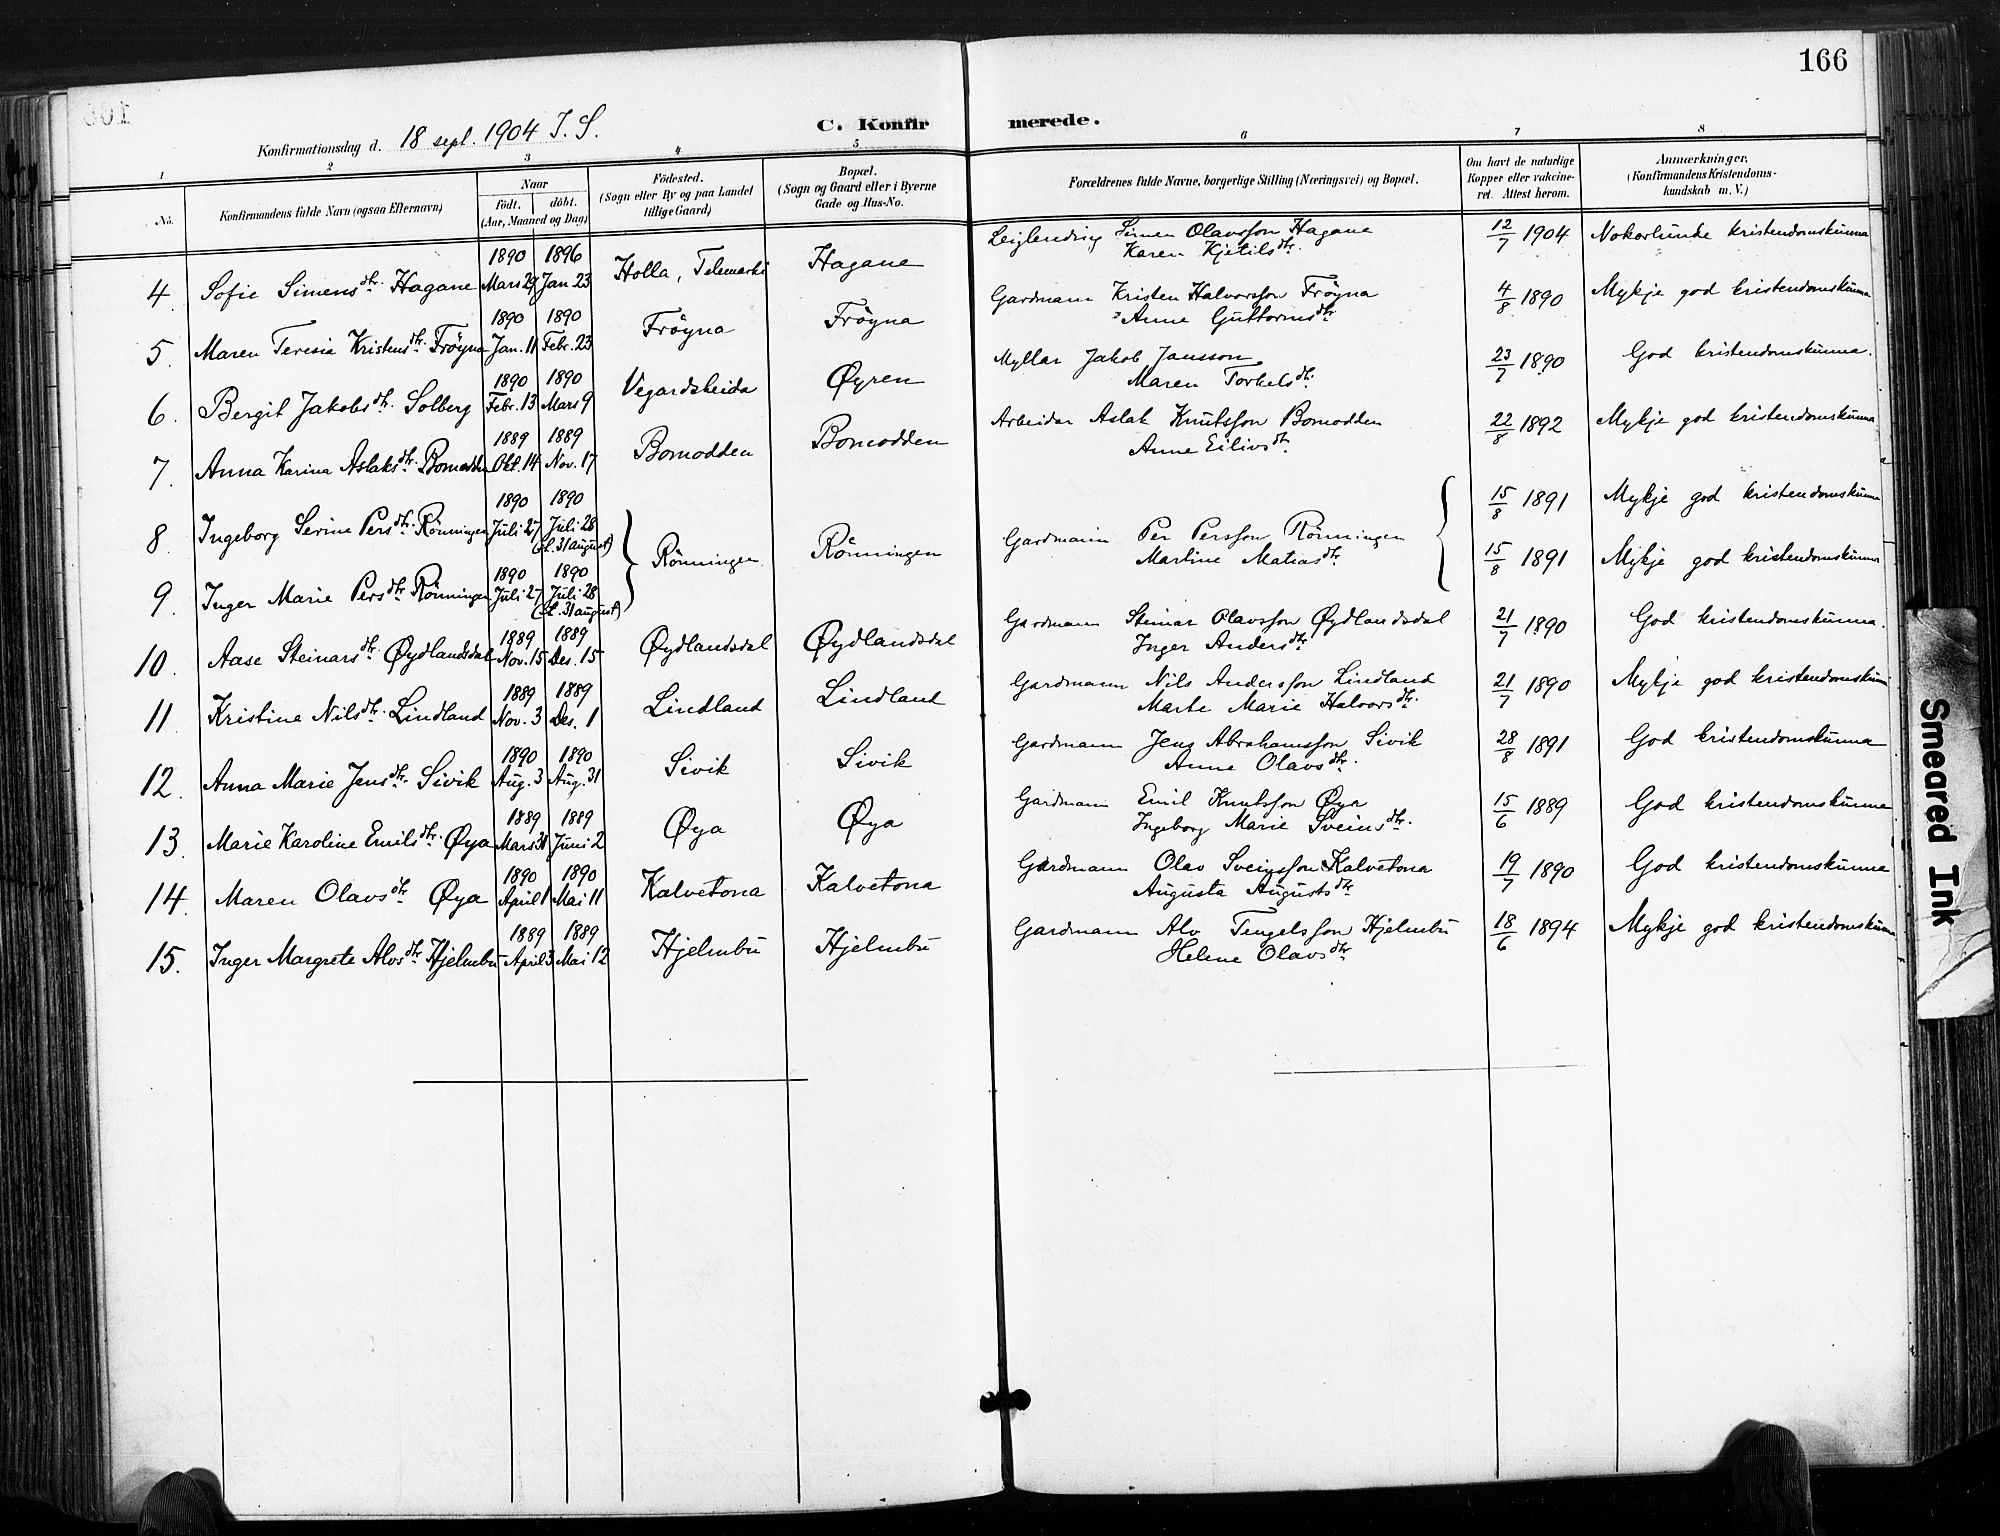 166
Konfirmationsdag d. 18 sept. 1904 I. S.
C. Konfirmerede.
1 2 3 4 5 6 7 8
No.
Konfirmandens fulde Navn (ogsaa Efternavn)
Naar
Født. døbt.
(Aar, Maaned og Dag)
Födested.
(Sogn eller By og paa Landet
tillige Gaard)
Bopæl.
(Sogn og Gaard eller i Byerne
Gade og Hus-No.
Forældrenes fulde Navne, borgerlige Stilling (Næringsvei) og Bopæl.
Om havt de naturlige
Kopper eller vakcine-
ret. Attest herom.
Anmærkninger.
(Konfirmandens Kristendoms-
kundskab m. V.)
4. Sofie Simensdtr. Hagane 1890 Mars 29 1896 Jan. 23 Holla, Telemarki Hagane Leiglending Simen Olavsson Hagane 12/7 1904 Nokorlunde kristendomskunna
Karen Kjetilsdtr.
5. Maren Teresia Kristensdtr. Frøyna 1890 Jan. 11 1890 Febr. 23 Frøyna Frøyna Gardmann Kristen Halvorsson Frøyna 4/8 1890 Mykje god kristendomskunna
Anne Guttormsdtr.
6. Bergit Jakobsdtr. Solberg 1890 Febr. 13 1890 Mars 9 Vegardsheida Øyren Myllar Jakob Jansson 23/7 1890 God kristendomskunna.
Maren Torkelsdtr.
7. Anna Karina Aslaksdtr. Bomodden 1889 Okt. 14 1889 Nov. 17 Bomodden Bomodden Arbeidar Aslak Knutsson Bomodden 22/8 1892 Mykje god kristendomskunna
Anne Eilivsdtr.
8. Ingeborg Serine Persdtr. Rønningen 1890 Juli 27 1890 Juli 28 (st. 31 august) Rønningen Rønningen Gardmann Per Persson Rønningen 15/8 1891 Mykje god kristendomskunna
Martine Matiasdtr.
9. Inger Marie Persdtr. Rønningen 1890 Juli 27 1890 Juli 28 (st. 31 august) 15/8 1891 Mykje god kristendomskunna
10. Aase Steinarsdtr. Øydlandsdal 1889 Nov. 15 1889 Des. 15 Øydlandsdal Øydlandsdal Gardmann Steinar Olavsson Øydlandsdal 21/7 1890 God kristendomskunna.
Inger Andersdtr.
11. Kristine Nilsdtr. Lindland 1889 Nov. 3 1889 Des. 1 Lindland Lindland Gardmann Nils Andersson Lindland 21/7 1890 Mykje god kristendomskunna
Marte Marie Halvorsdtr.
12. Anna Marie Jensdtr. Sivik 1890 Aug. 3 1890 Aug. 31 Sivik Sivik Gardmann Jens Abrahamsson Sivik 28/8 1891 God kristendomskunna
Anne Olavsdtr.
13. Marie Karoline Emilsdtr. Øya 1889 Mars 31 1889 Juni 2 Øya Øya Gardmann Emil Knutsson Øya 15/6 1889 God kristendomskunna
Ingeborg Marie Sveinsdtr.
14. Maren Olavsdtr. Øya 1890 April 1 1890 Mai 11 Kalvetona Kalvetona Gardmann Olav Sveinsson Kalvetona 19/7 1890 God kristendomskunna
Augusta Augustsdtr.
15. Inger Margrete Alvsdtr. Hjelmbu 1889 April 3 1889 Mai 12 Hjelmbu Hjelmbu Gardmann Alv Tengelsson Hjelmbu 18/6 1894 Mykje god kristendomskunna
Helene Olavsdtr.
Smeared Ink